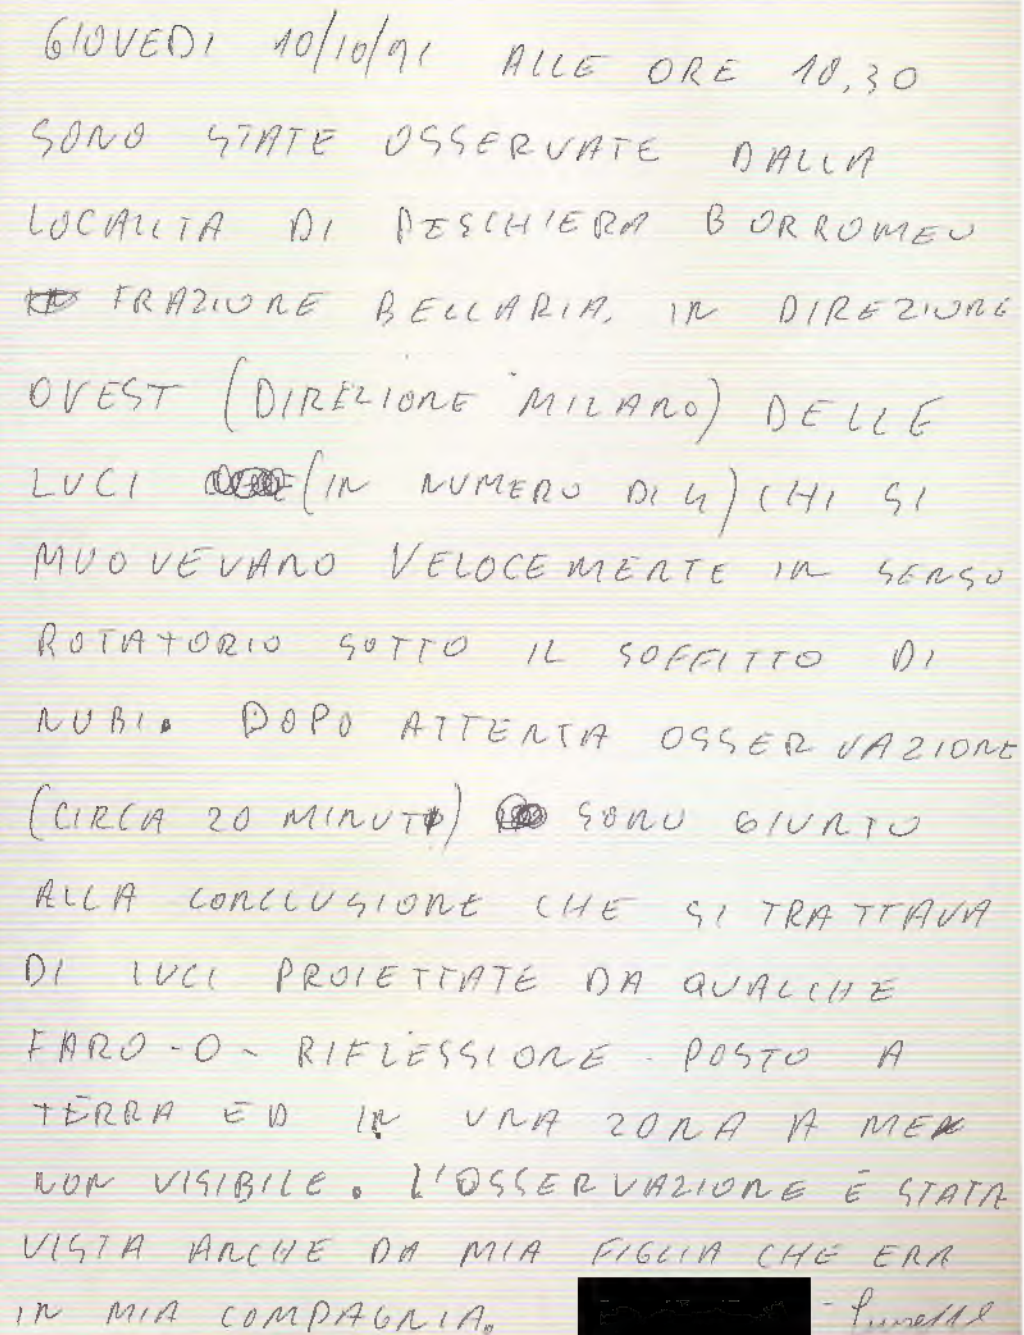 GIOVEDI 10/10/91 ALLE ORE 18,30
SONO STATE OSSERVATE DALLA
LOCALITA DI PESCHIERA BORROMEO
FRAZIONE BELLARIA, IN DIREZIONE
OVEST (DIREZIONE MILANO) DELLE
LUCI (IN NUMERO DI 4) CHI SI
MUOVEVANO VELOCEMENTE IN SENSO
ROTATORIO SOTTO IL SOFFITTO DI
NUBI. DOPO ATTENTA OSSERVAZIONE
(CIRCA 20 MINUTI) SONO GIUNTO
ALLA CONCLUSIONE CHE SI TRATTAVA
DI LUCI PROIETTATE DA QUALCHE
FARO - O - RIFLESSIONE - POSTO A
TERRA ED IN UNA ZONA A ME
NON VISIBILE. L'OSSERVAZIONE E STATA
VISTA ANCHE DA MIA FIGLIA CHE ERA
IN MIA COMPAGNIA.